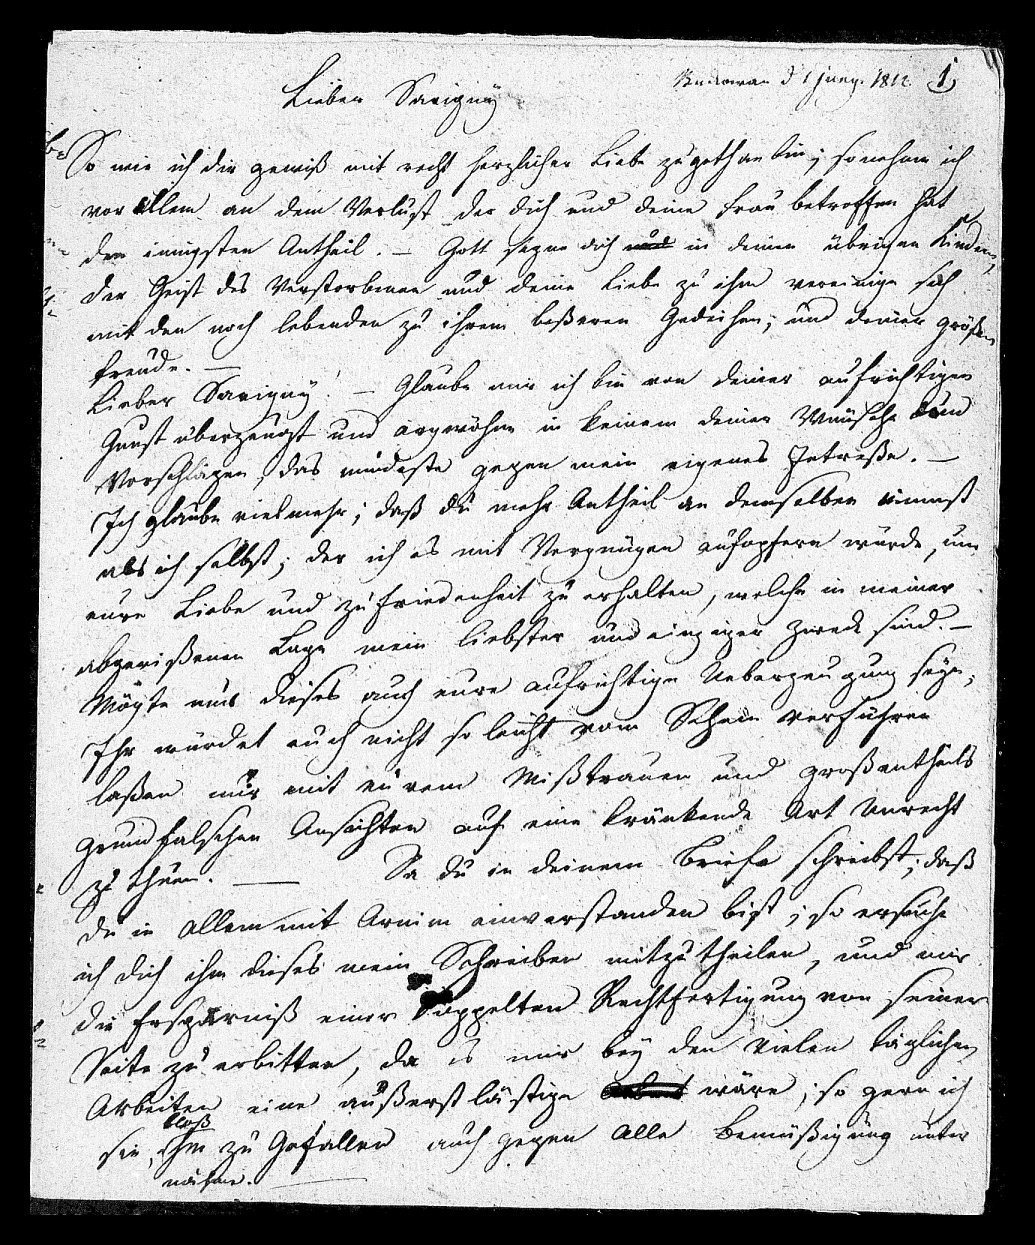 Bukowan d 1 Juny. 1812. 1)
Lieber Savigny
So wie ich dir gewiß mit recht herzlicher Liebe zugethan bin; so nehme ich
vor allem an dem Verlust der dich und deine Frau betroffen hat
den innigsten Antheil. — Gott segne dich in deinen übrigen Kindern,
der Geist des Verstorbenen und deine Liebe zu ihm vereinige sich
mit den noch lebenden zu ihrem beßeren Gedeihen; und deiner größten
Freude. —
Lieber Savigny! — Glaube mir ich bin von deiner aufrichtigen
Gunst überzeugt und argwöhne in keinem deiner Wünsche und
Vorschlägen, das mindeste gegen mein eigenes Intreße. —
Ich glaube vielmehr; daß du mehr Antheil an demselben nimmst
als ich selbst; der ich es mit Vergnügen aufopfern würde, um
eure Liebe und zufriedenheit zu erhalten, welche in meiner
abgerißenen Lage mein liebster und einziger Zweck sind. —
Mögte nur dieses auch eure aufrichtige Ueberzeugung seyn;
Ihr würdet euch nicht so leicht vom Schein verführen
laßen mir mit eurem Mißtrauen und großentheils
grundfalschen Ansichten auf eine kränkende Art Unrecht
zu thuen. — Da du in deinem Briefe schreibst; daß
du in allem mit Arnim einverstanden bist; so ersuche
ich dich ihm dieses mein Schreiben mitzutheilen, und mir
die Ersparniß einer doppelten Rechtfertigung von seiner
Seite zu erbitten, da es mir bey den vielen täglichen
Arbeiten eine äußerst lästige wäre; so gern ich
sie, bloß Ihm zu Gefallen auch gegen alle Bemüßigung unter
nähme. —